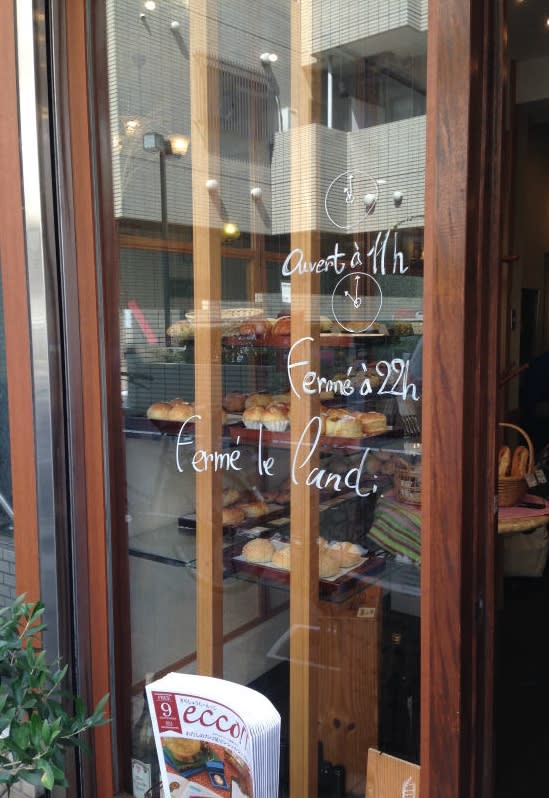 Ouvert à 11h
Fermé à 22h
Fermé le landi
FREE
9
ecco!